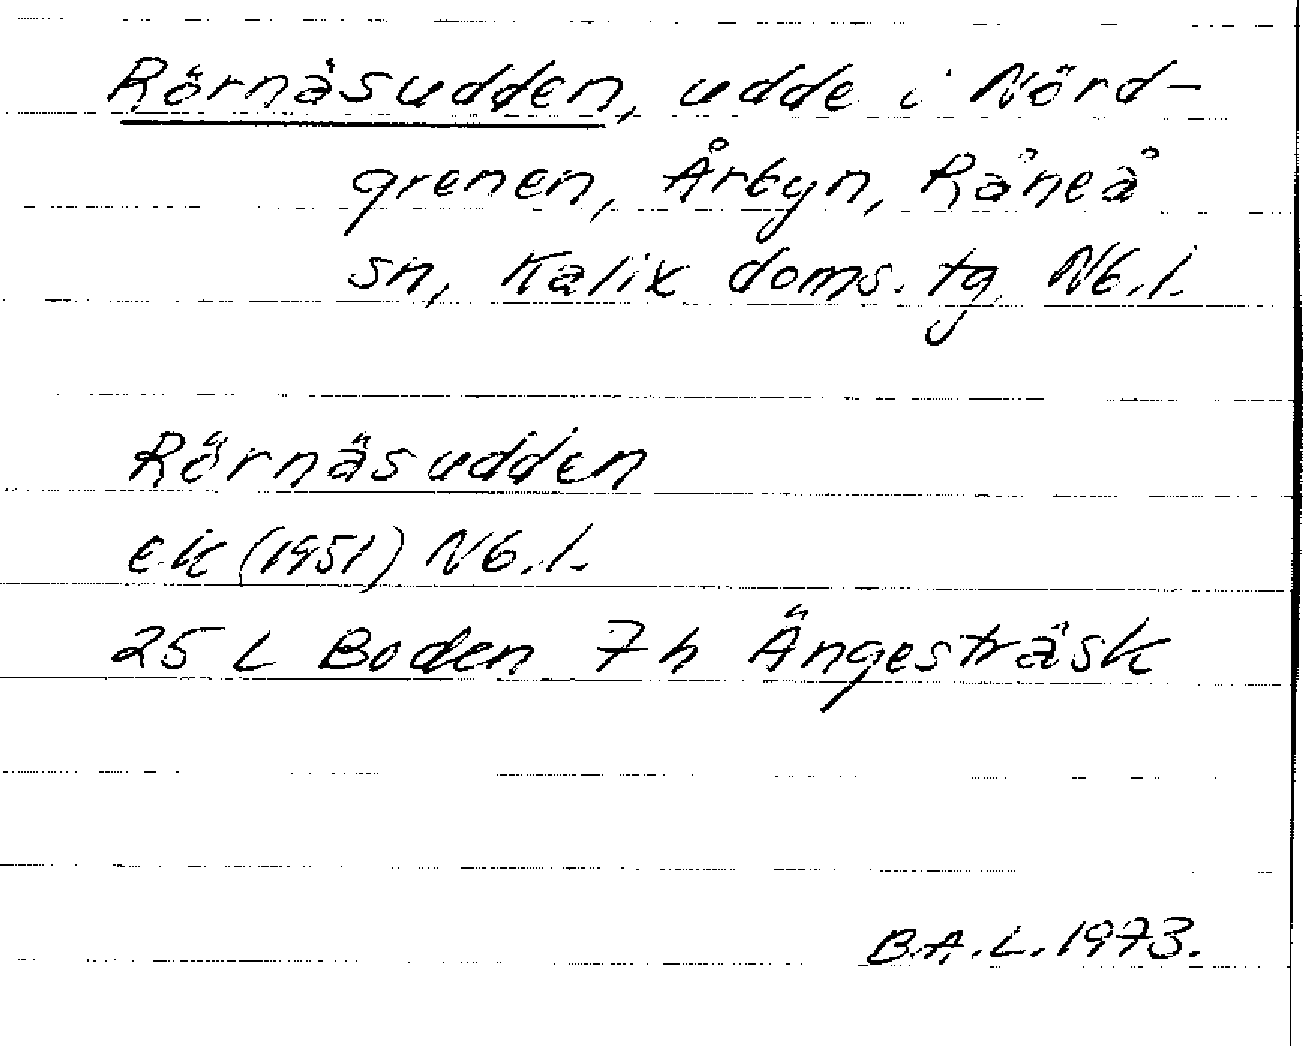 Rörnäsudden, udde i Nörd-
grenen, Årbyn, Råneå
sn, Kalix doms. tg, Nb. l.
Rörnäsudden
ek (1951) Nb. l.
25 L Boden 7 h Ängesträsk
B.A.L. 1973.